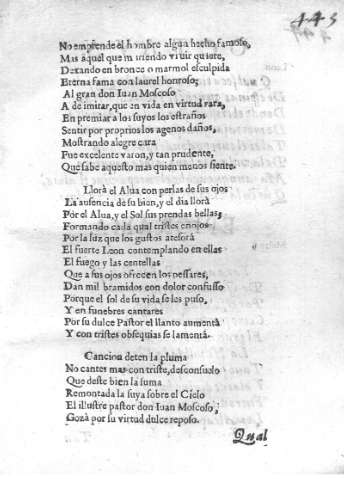 445
No emprende el hombre algun hecho famoso,
Mas aquel que muriendo viuir quiere,
Dexando en bronce o marmol esculpida
Eterna fama con laurel honroso;
Al gran don Iuan Moscoso
A de imitar, que en vida en virtud rara,
En premiar a los suyos los estraños
Sentir por proprios los agenos daños,
Mostrando alegre cara
Fue excelente varon, y tan prudente,
Que sabe aquesto mas quien menos siente.
Llora el Alua con perlas de sus ojos
La ausencia de su bien, y el dia llora
Por el Alua, y el Sol sus prendas bellas,
Formando cada qual tristes enojos
Por la luz que los gustos atesora
El fuerte Leon contemplando en ellas
El fuego y las centellas
Que a sus ojos ofrecen los pessares,
Dan mil bramidos con dolor confusso
Porque el sol de su vida se les puso,
Y en funebres cantares
Por su dulce Pastor el llanto aumenta
Y con tristes obsequias se lamenta.
Cancion deten la pluma
No cantes mas con triste, desconsuelo
Que deste bien la suma
Remontada la suya sobre el Cielo
El illustre pastor don Iuan Moscoso,
Goza por su virtud dulce reposo.
Qual